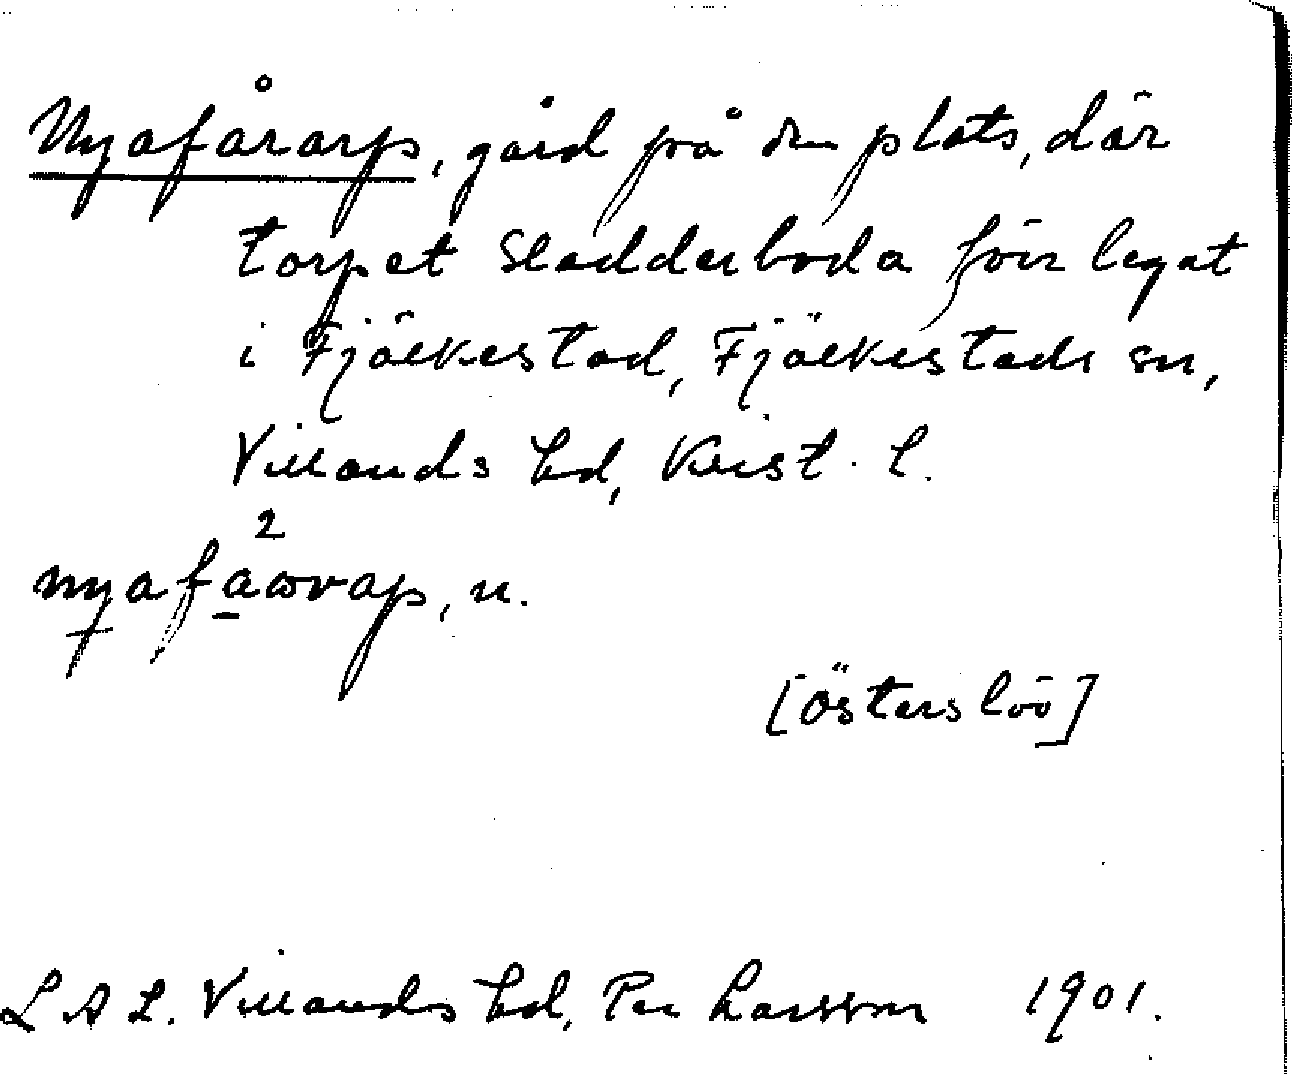 Nyafårarp, gård på den plats, där
torpet Sladderboda förr legat
i Fjälkestad, Fjälkestads sn,
Villands hd, Krist. l.
2
nyafåωrap, n.
[Österslöv]
LAL. Villands hd, Per Larsson 1901.